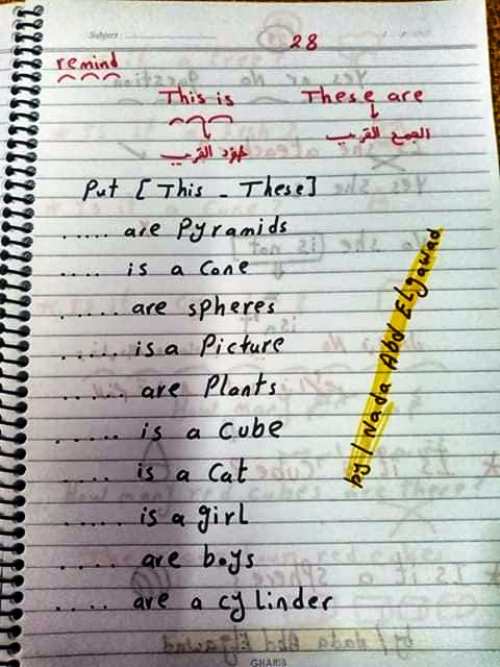 Subject
28
remind
This is These are
مفرد القريب الجمع القريب
Put [This - These]
..... are Pyramids
..... is a Cone
..... are spheres
..... is a Picture
..... are Plants
..... is a Cube
..... is a Cat
..... is a girl
..... are boys
..... are a cylinder
by / Nada Abd Elgawad
GHARIB